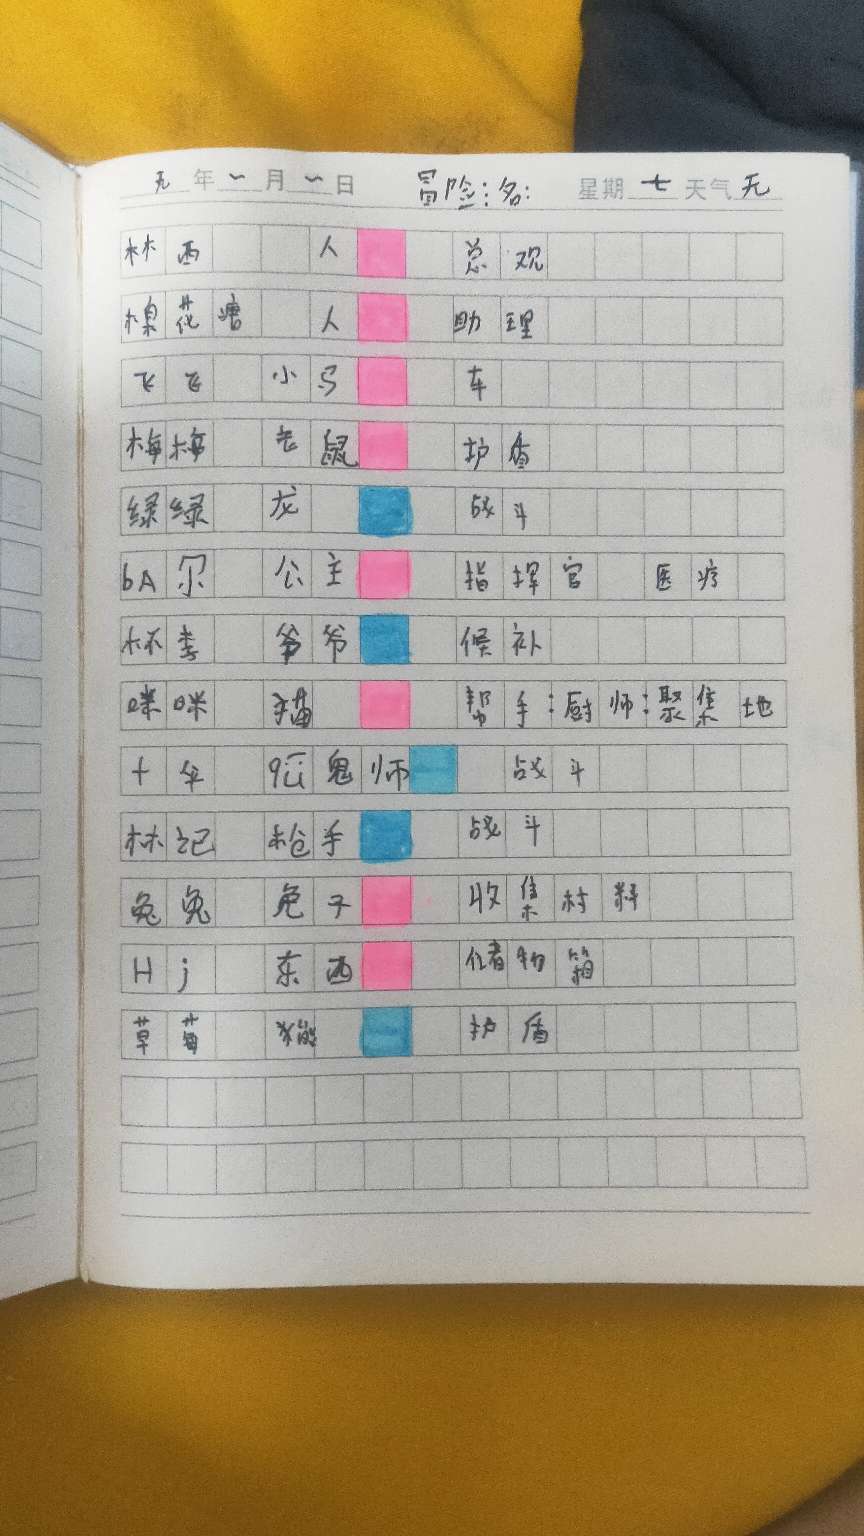 无年一月一日 冒险:名: 星期七天气无
林西 人 总观
棉花塘 人 助理
飞飞 小马 车
梅梅 老鼠 护盾
绿绿 龙 战斗
bA尔 公主 指挥官 医疗
林李 爷爷 候补
咪咪 猫 帮手:厨师:聚集地
十伞 鬼师 战斗
林记 枪手 战斗
兔兔 兔子 收集材料
Hj 东西 储物箱
草莓 熊 护盾